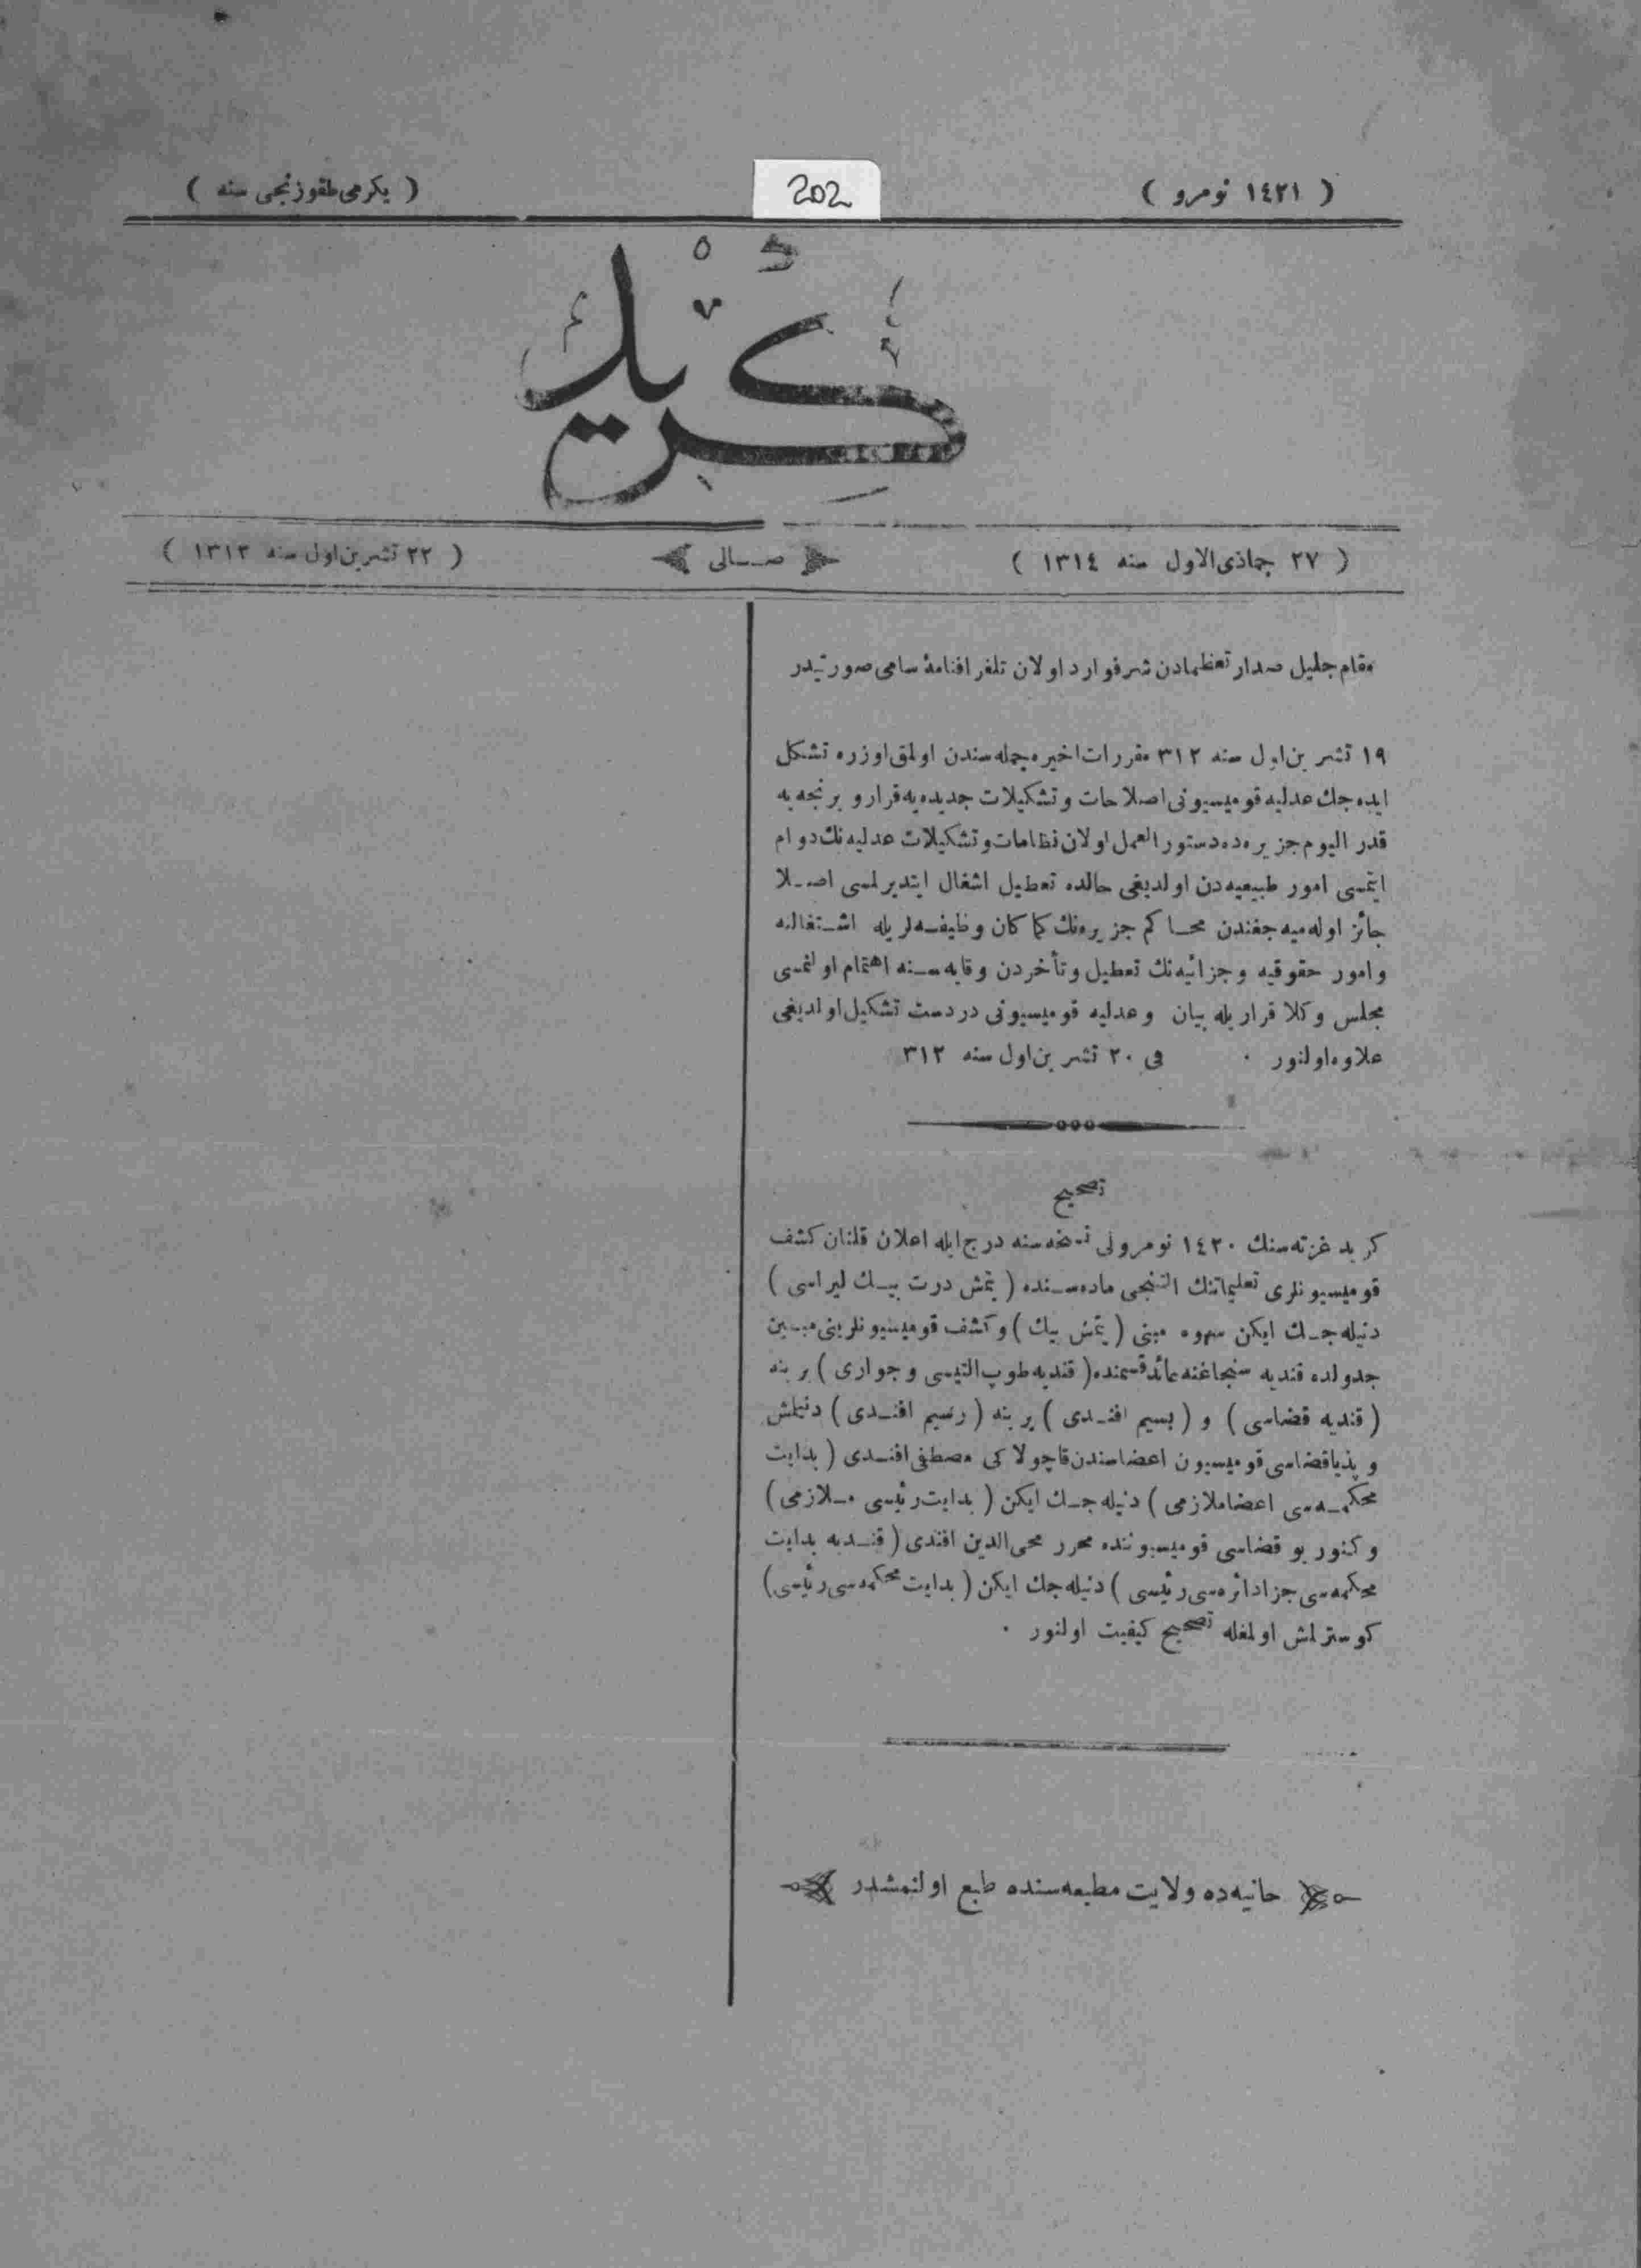 ( ١٤٢١ نومرو )
202
( يكرمى طقوزنجى سنه )
كريد
( ٢٧ جماذى الاول سنه ١٣١٤ )
صالى
( ٢٢ تشرين اول سنه ١٣١٢ )
مقام جليل صدارتعظمادن شرفوارد اولان تلغرافنامۀ سامى صورتيدر
١٩ تشرين اول سنه ٣١٢ مقررات اخيره جمله سندن اولمق اوزره تشكل
ايده جك عدليه قوميسيونى اصلاحات و تشكيلات جديده يه قرار و يرنجه يه
قدر اليوم جزيره ده دستور العمل اولان نظامات و تشكيلات عدليه نك دوام
ايتمسى امور طبيعيه دن اولديغى حالده تعطيل اشغال ايتديرلمسى اصلا
جائز اوله ميه جغندن محاكم جزيره نك كما كان وظيفه لريله اشتغالنه
و امور حقوقيه و جزائيه نك تعطيل و تأخردن وقايه سنه اهتمام اولنمسى
مجلس وكلا قراريله بيان و عدليه قوميسيونى دردست تشكيل اولديغى
علاوه اولنور ٠ فى ٢٠ تشرين اول سنه ٣١٢
تصحيح
كريد غزته سنك ١٤٢٠ نومرولى نسخه سنه درج ايله اعلان قلنان كشف
قوميسيونلرى تعليماتنك التنجى ماده سنده ( يتمش درت بيك ليراسى )
دنيله جك ايكن سهوه مبنى ( يتمش بيك ) و كشف قوميسيونلرينى مبين
جدولده قنديه سنجاغنه عائد قسمنده ( قنديه طوپ التيسى و جوارى ) يرينه
( قنديه قضاسى ) و ( بسيم افندى ) يرينه ( رسيم افندى ) دنيلمش
و پذيا قضاسى قوميسيون اعضاسندن قاچولاكى مصطفى افندى ( بدايت
محكمه سى اعضا ملازمى ) دنيله جك ايكن ( بدايت رئيسى ملازمى )
و كنوريو قضاسى قوميسيوننده محرر محى الدين افندى ( قنديه بدايت
محكمه سى جزا دائره سى رئيسى ) دنيله جك ايكن ( بدايت محكمه سى رئيسى )
كوسترلمش اولمغله تصحيح كيفيت اولنور ٠
حانيه ده ولايت مطبعه سنده طبع اولنمشدر